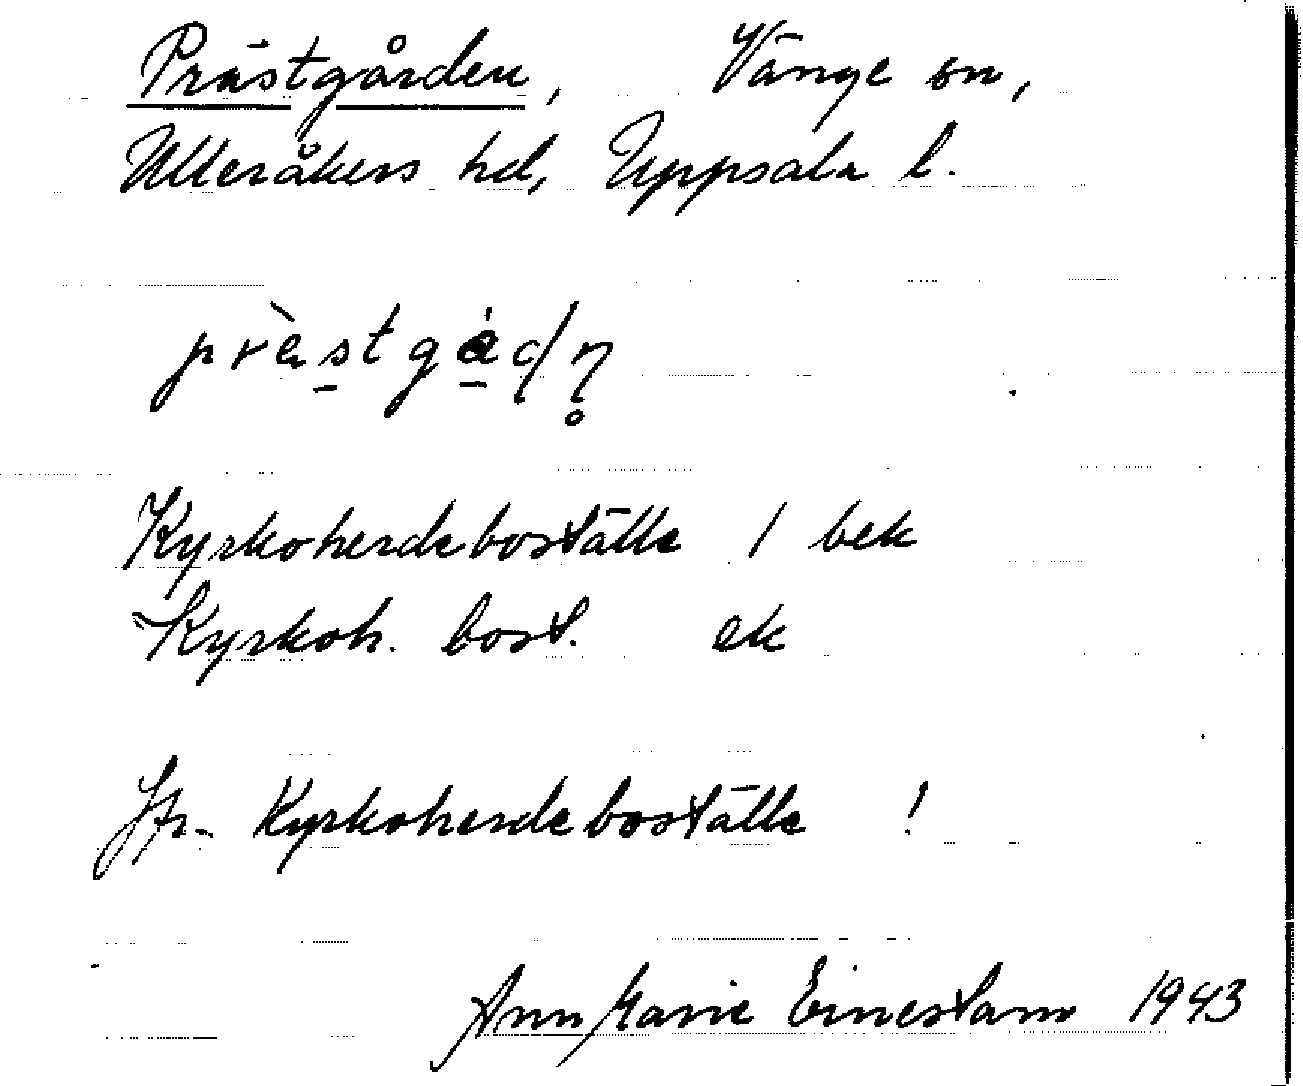 Prästgården, Vänge sn,
Ulleråkers hd, Uppsala l.
prèstgádn̥
Kyrkoherdeboställe / bek
Kyrkoh. bost. ek
Jfr Kyrkoherdeboställe !
Ann Marie Einestam 1943